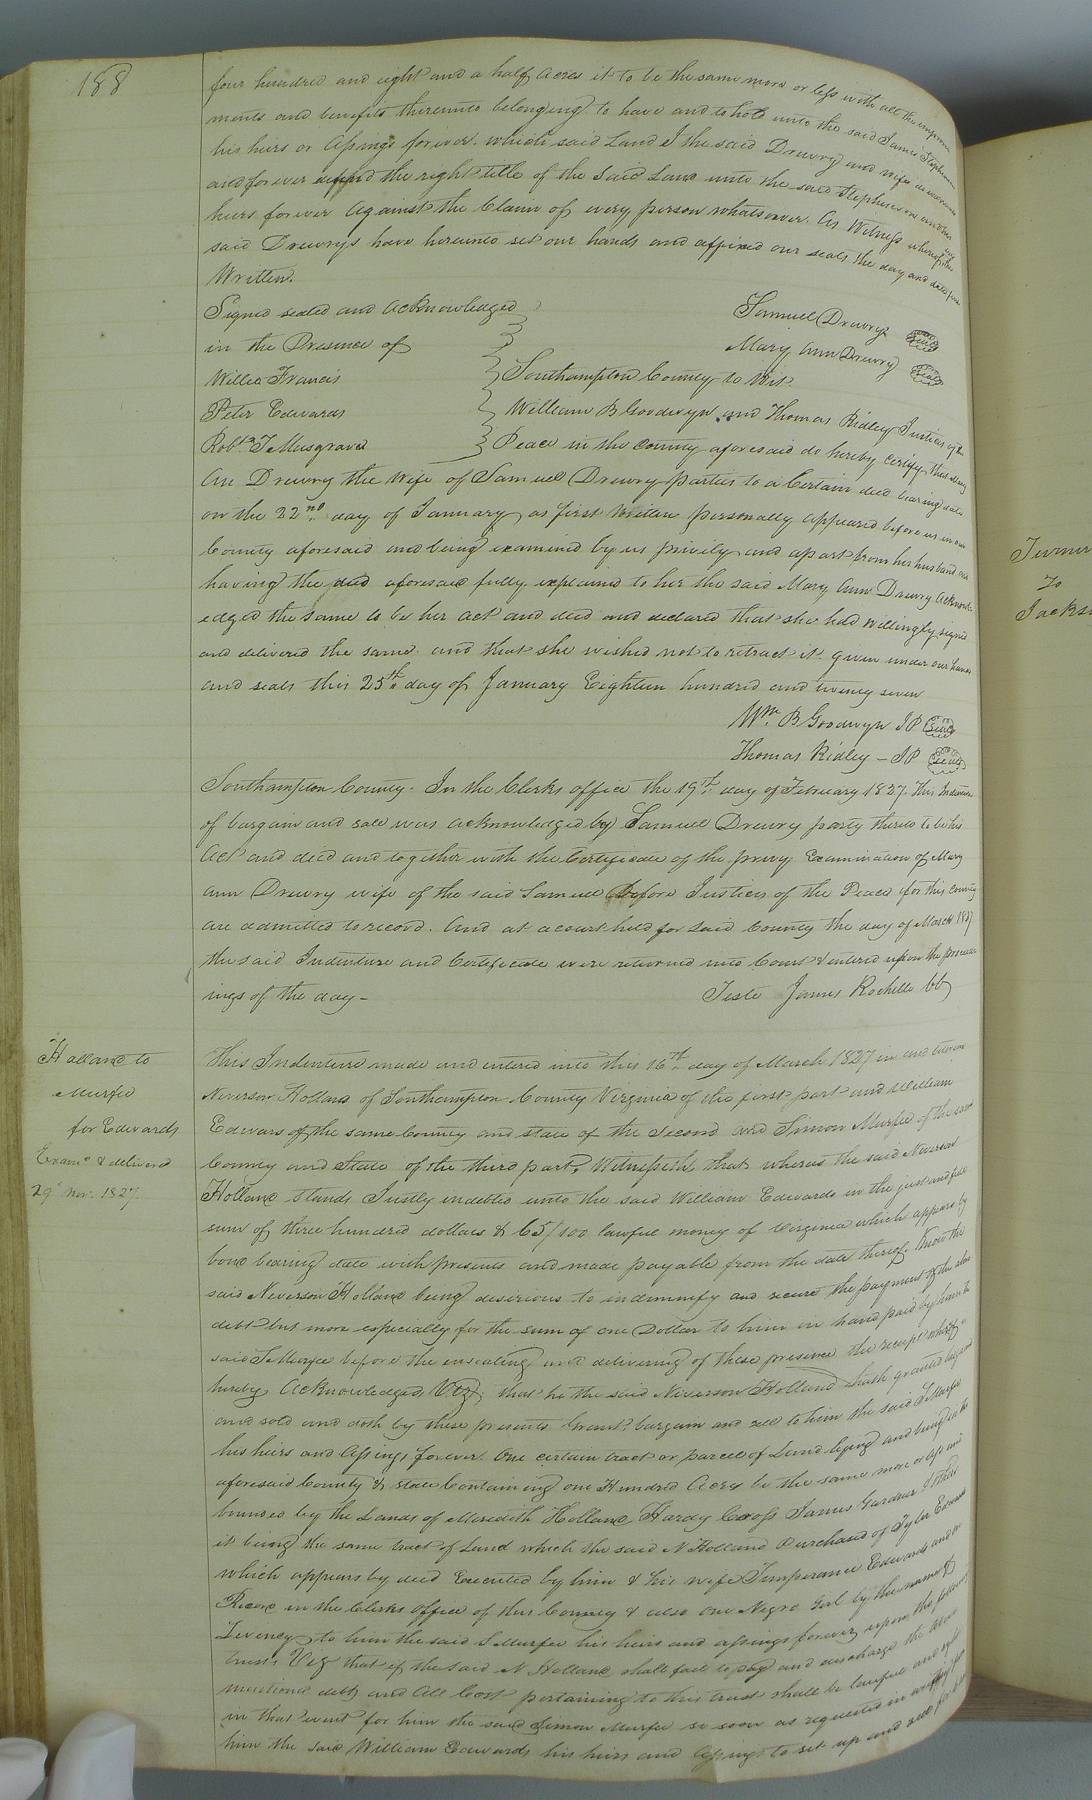 188
four hundred and eight and a half acres it to be the same more or less with all the improve
ments and benefits thereunto belonging to have and to hold unto the said James Stephenson
his heirs or assings forever. which said Land I the said Drewry and wife do warrant
and forever the right title of the said Land unto the said Stephenson and his
heirs forever against the Claim of every person whatsoever. As Witness whereof the
said Drewrys have hereunto set our hands and affixed our seals the day and date first
Written.
Signed sealed and acknowledged
in the Presence of
Willie Francis
Peter Edwards
Robt. T. Musgrave
Samuel Drewry Seal
Mary Ann Drewry Seal
Southampton County to Wit.
William B Goodwyn and Thomas Ridley Justices of the
Peace in the County aforesaid do hereby certify that Mary
Ann Drewry the wife of Samuel Drewry parties to a Certain deed bearing date
on the 22nd. day of January as first written personally appeared before us in our
County aforesaid and being examined by us privily and apart from her husband and
having the deed aforesaid fully explained to her the said Mary Ann Drewry acknowl
edged the same to be her act and deed and declared that she had willingly signed
and delivered the same and that she wished not to retract it. given under our hands
and seals this 25th. day of January Eighteen hundred and twenty seven
Wm. B Goodwyn JP Seal
Thomas Ridley - JP Seal
Southampton County. In the Clerks office the 19th. day of February 1827. This Indenture
of bargain and sale was acknowledged by Samuel Drewry party thereto to be his
Act and deed and together with the Certificate of the privy Examination of Mary
Ann Drewry wife of the said Samuel before Justices of the Peace for this County
are admitted to record. And at a court held for said County the day of March 1827
the said Indenture and Certificate were returned into Court & entered upon the proceed
ings of the day -
Teste James Rochelle CC
Holland to
Murfee
for Edwards
Exam.d & delivered
29th Nov. 1827.
This Indenture made and entered into this 16th. day of March 1827 in and between
Neverson Holland of Southampton County Virginia of the first part and William
Edwars of the same County and state of the Second and Simon Murfee of the said
County and State of the third part, Witnesseth that whereas the said Neverson
Holland stands Justly indebted unto the said William Edwards in the just and full
sum of three hundred dollars & 65/100 lawful money of Virginia which appears by
bond bearing date with presents and made payable from the date thereof. Know the
said Neverson Holland being desirious to indemnify and secure the payment of the above
debt but more especially for the sum of one Dollar to him in hand paid by him the
said S Murfee before the ensealing and delivering of these presence the receipt whereof is
hereby Acknowledged, Viz; that he the said Neverson Holland hath granted bargained
and sold and doth by these presents Grant, bargain and sell to him the said S Murfee
his heirs and assings forever. One certain tract or parcel of Land lying and being in the
aforesaid County & state containing one Hundred Acres be the same more or less and
bounded by the Lands of Meredith Holland, Hardy Cross James Gardner & others
it being the same tract of Land which the said N Holland Purchased of Tyler Edwards
which appears by deed Executed by him & his wife Temperance Edwards and on
Record in the Clerks office of this County & also one Negro Girl by the name of
to him the said S Murfee his heirs and assings forever, upon the following
trusts Viz that if the said N Holland shall fail to pay and discharge the above
mentioned debt and All Cost pertaining to this trust shall be lawful and right
in that event for him the said Simon Murfee so soon as requested in writing
him the said William Edwards his heirs and assings to set up and sell for
Turner
To